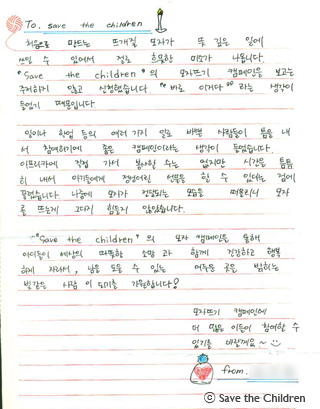 To. save the children
처음으로 만드는 뜨개질 모자가 뜻 깊은 일에
쓰일 수 있어서 절로 흐뭇한 미소가 나옵니다.
"Save the children"의 모자뜨기 캠페인을 보고는
주저하지 않고 신청했습니다. "바로 이거다" 라는 생각이
들었기 때문입니다.
일이나 학업 등의 여러가지 일로 바쁜 사람들이 틈을 내
서 참여하기에 좋은 캠페인이라는 생각이 들었습니다.
아프리카에 직접 가서 봉사할 수는 없지만 시간을 틈틈
히 내서 아기들에게 정성어린 선물을 할 수 있다는 점에
끌렸습니다. 나중에 모자가 전달되는 모습을 떠올리니 모자
를 뜨는게 그다지 힘들지 않았습니다.
"Save the children"의 모자 캠페인을 통해
아이들이 세상의 따뜻한 소망과 함께 건강하고 행복
하게 자라서, 남을 도울 수 있는 어두운 곳을 밝히는
빛같은 사람이 되기를 기원합니다?
모자뜨기 캠페인에
더 많은 이들이 참여할 수
있기를 바랄게요~
from.
© Save the Children